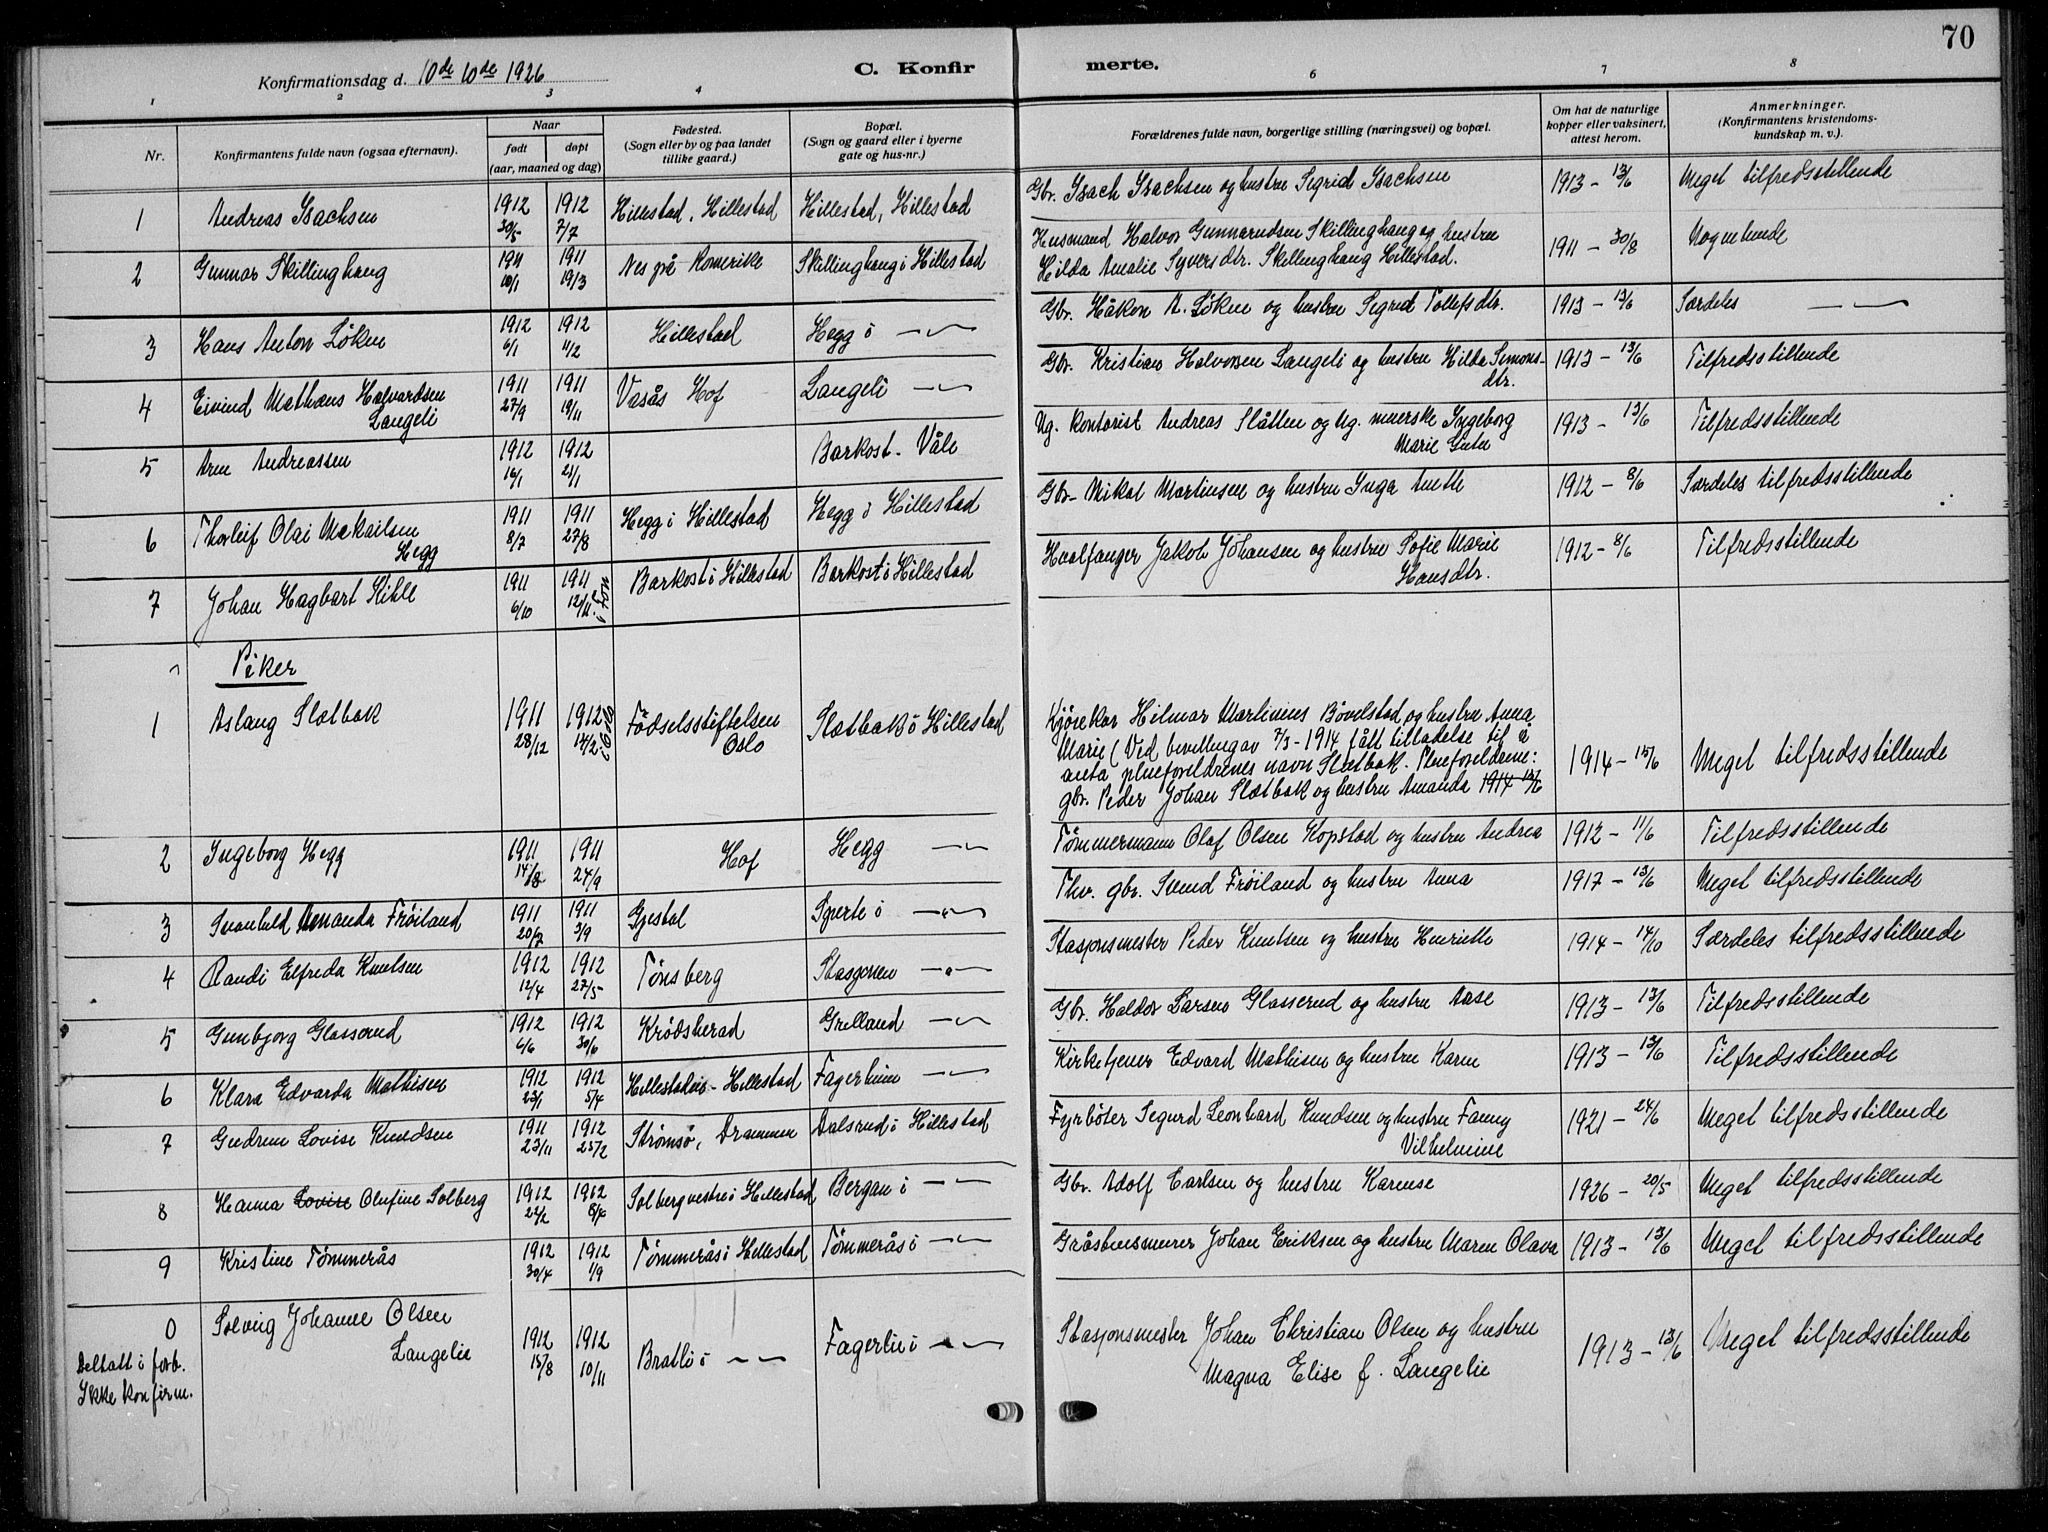 70
Konfirmationsdag d. 10de 10de 1926 C. Konfir merte.
1 2 3 4 6 7 8
Nr. Konfirmantens fulde navn (ogsaa efternavn). Naar født døpt (aar, maaned og dag) Fødested. (Sogn eller by og paa landet tillike gaard.) Bopæl. (Sogn og gaard eller i byerne gate og hus-nr.) Forældrenes fulde navn, borgerlige stilling (næringsvei) og bopæl. Om hat de naturlige kopper eller vaksinert, attest herom. Anmerkninger. (Konfirmantens kristendoms-kundskap m. v.).
1 Andreas Isachsen 1912 30/5 1912 7/7 Hillestad, Hillestad Hillestad, Hillestad Gbr. Isach Isachsen og hustru Sigrid Isachsen 1913 – 13/6 Meget tilfredsstillende
2 Gunnar Skillinghaug 1911 10/1 1911 19/3 Nes på Romerike Skillinghaug i Hillestad Husmand Halvor Gunnarudsen Skillinghaug og hustru
Hilda Amalie Syversdtr. Skillinghaug Hillestad. 1911 – 30/8 Nogenlunde
3 Hans Anton Löken 1912 6/1 1912 11/2 Hillestad Hegg i —〃— Gbr. Håkon A. Löken og hustru Sigrid Tollefsdtr. 1913 – 13/6 Særdeles —〃—
4 Eivind Mathæus Halvardsen
Langeli 1911 27/9 1911 19/11 Vasås Hof Langeli —〃— Gbr. Kristian Halvorsen Langeli og hustru Hilda Simons-
dtr. 1913 – 13/6 Tilfredsstillende
5 Arne Andreassen 1912 16/1 1912 21/1 Barkost. Våle Ug. kontorist Andreas Slåtten og ug. meierske Ingeborg
Marie 1913 – 13/6 Tilfredsstillende
6 Thorleif Olai Mekailsen
Hegg 1911 8/7 1911 27/8 Hegg i Hillestad Hegg i Hillestad Gbr. Mikal Martinsen og hustru Inga Anette 1912 – 8/6 Særdeles tilfredsstillende
7 Johan Hagbart Kihle 1911 6/10 1911 12/11 i Fon Barkost i Hillestad Barkost i Hillestad Hvalfanger Jakob Johansen og hustru Sofie Marie
Hansdtr. 1912 – 8/6 Tilfredsstillende
Piker
1 Aslaug Slætbak 1911 28/12 1912 14/2 i Oslo Födselsstiftelsen
Oslo Slætbak i Hillestad Kjörekar Hilmar Martinius Bövelstad og hustru Anna
Marie (Ved bevilling av 7/3 – 1914 fått tilladelse til å
anta pleieforeldrenes navn Slætbak. Pleieforeldrene:
gbr. Peder Johan Slætbak og hustru Amanda 1914 13/6 1914 – 15/6 Meget tilfredsstillende
2 Ingeborg Hegg 1911 14/8 1911 24/9 Hof Hegg —〃— Tömmermann Olaf Olsen Kopstad og hustru Andrea 1912 – 11/6 Tilfredsstillende
3 Svanhild Amanda Fröiland 1911 20/7 1911 3/9 Gjestal Sperte i —〃— Fhv. gbr. Svend Fröiland og hustru Anna 1917 – 13/6 Meget tilfredsstillende
4 Randi Elfreda Knutsen 1912 12/4 1912 27/5 Tönsberg Stasjonen —〃— Stasjonsmester Peder Knutsen og hustru Henriette 1914 – 14/10 Særdeles tilfredsstillende
5 Gunbjorg Glasserud 1912 6/6 1912 30/6 Krödsherad Grelland —〃— Gbr. Haldor Larsen Glasserud og hustru Aase 1913 – 13/6 Tilfredsstillende
6 Klara Edvarda Mathisen 1912 23/1 1912 5/4 Hillestad Fagerheim —〃— Kirketjener Edvard Mathisen og hustru Karen 1913 – 13/6 Tilfredsstillende
7 Gudrun Lovise Knudsen 1911 23/11 1912 25/2 Strömsö, Drammen Dalsrud i Hillestad Fyrböter Sigurd Leonhard Knudsen og hustru Fanny
Vilhelmine 1921 – 24/6 Meget tilfredsstillende
8 Hanna Lovise Olufine Solberg 1912 22/2 1912 8/4 Solberg vestre i Hillestad Bergan i —〃— Gbr. Adolf Carlsen og hustru Karense 1926 – 20/5 Meget tilfredsstillende
9 Kristine Tömmerås 1912 30/4 1912 1/9 Tömmerås i Hillestad Tömmerås i —〃— Gråsteinsmurer Johan Eriksen og hustru Maren Olava 1913 – 13/6 Meget tilfredsstillende
0 Solveig Johanne Olsen
Langelie 1912 15/8 1912 10/11 Bratli i —〃— Fagerlii i —〃— Stasjonsmester Johan Christian Olsen og hustru
Magna Elise f. Langelie 1913 – 13/6 Meget tilfredsstillende
Deltatt i forb.
Ikke konfirm.